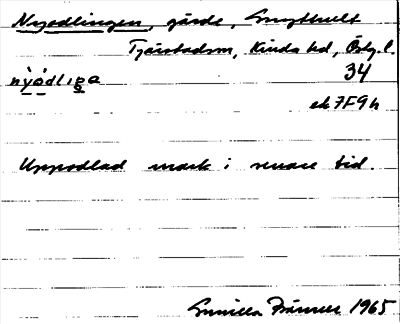 Nyodlingen, gärde, Smythult
Tjärstadsn, Kinda hd, Östg. l.
34
nyödliga
ek 7F9h
Uppodlad mark i senare tid.
Gunilla 1965